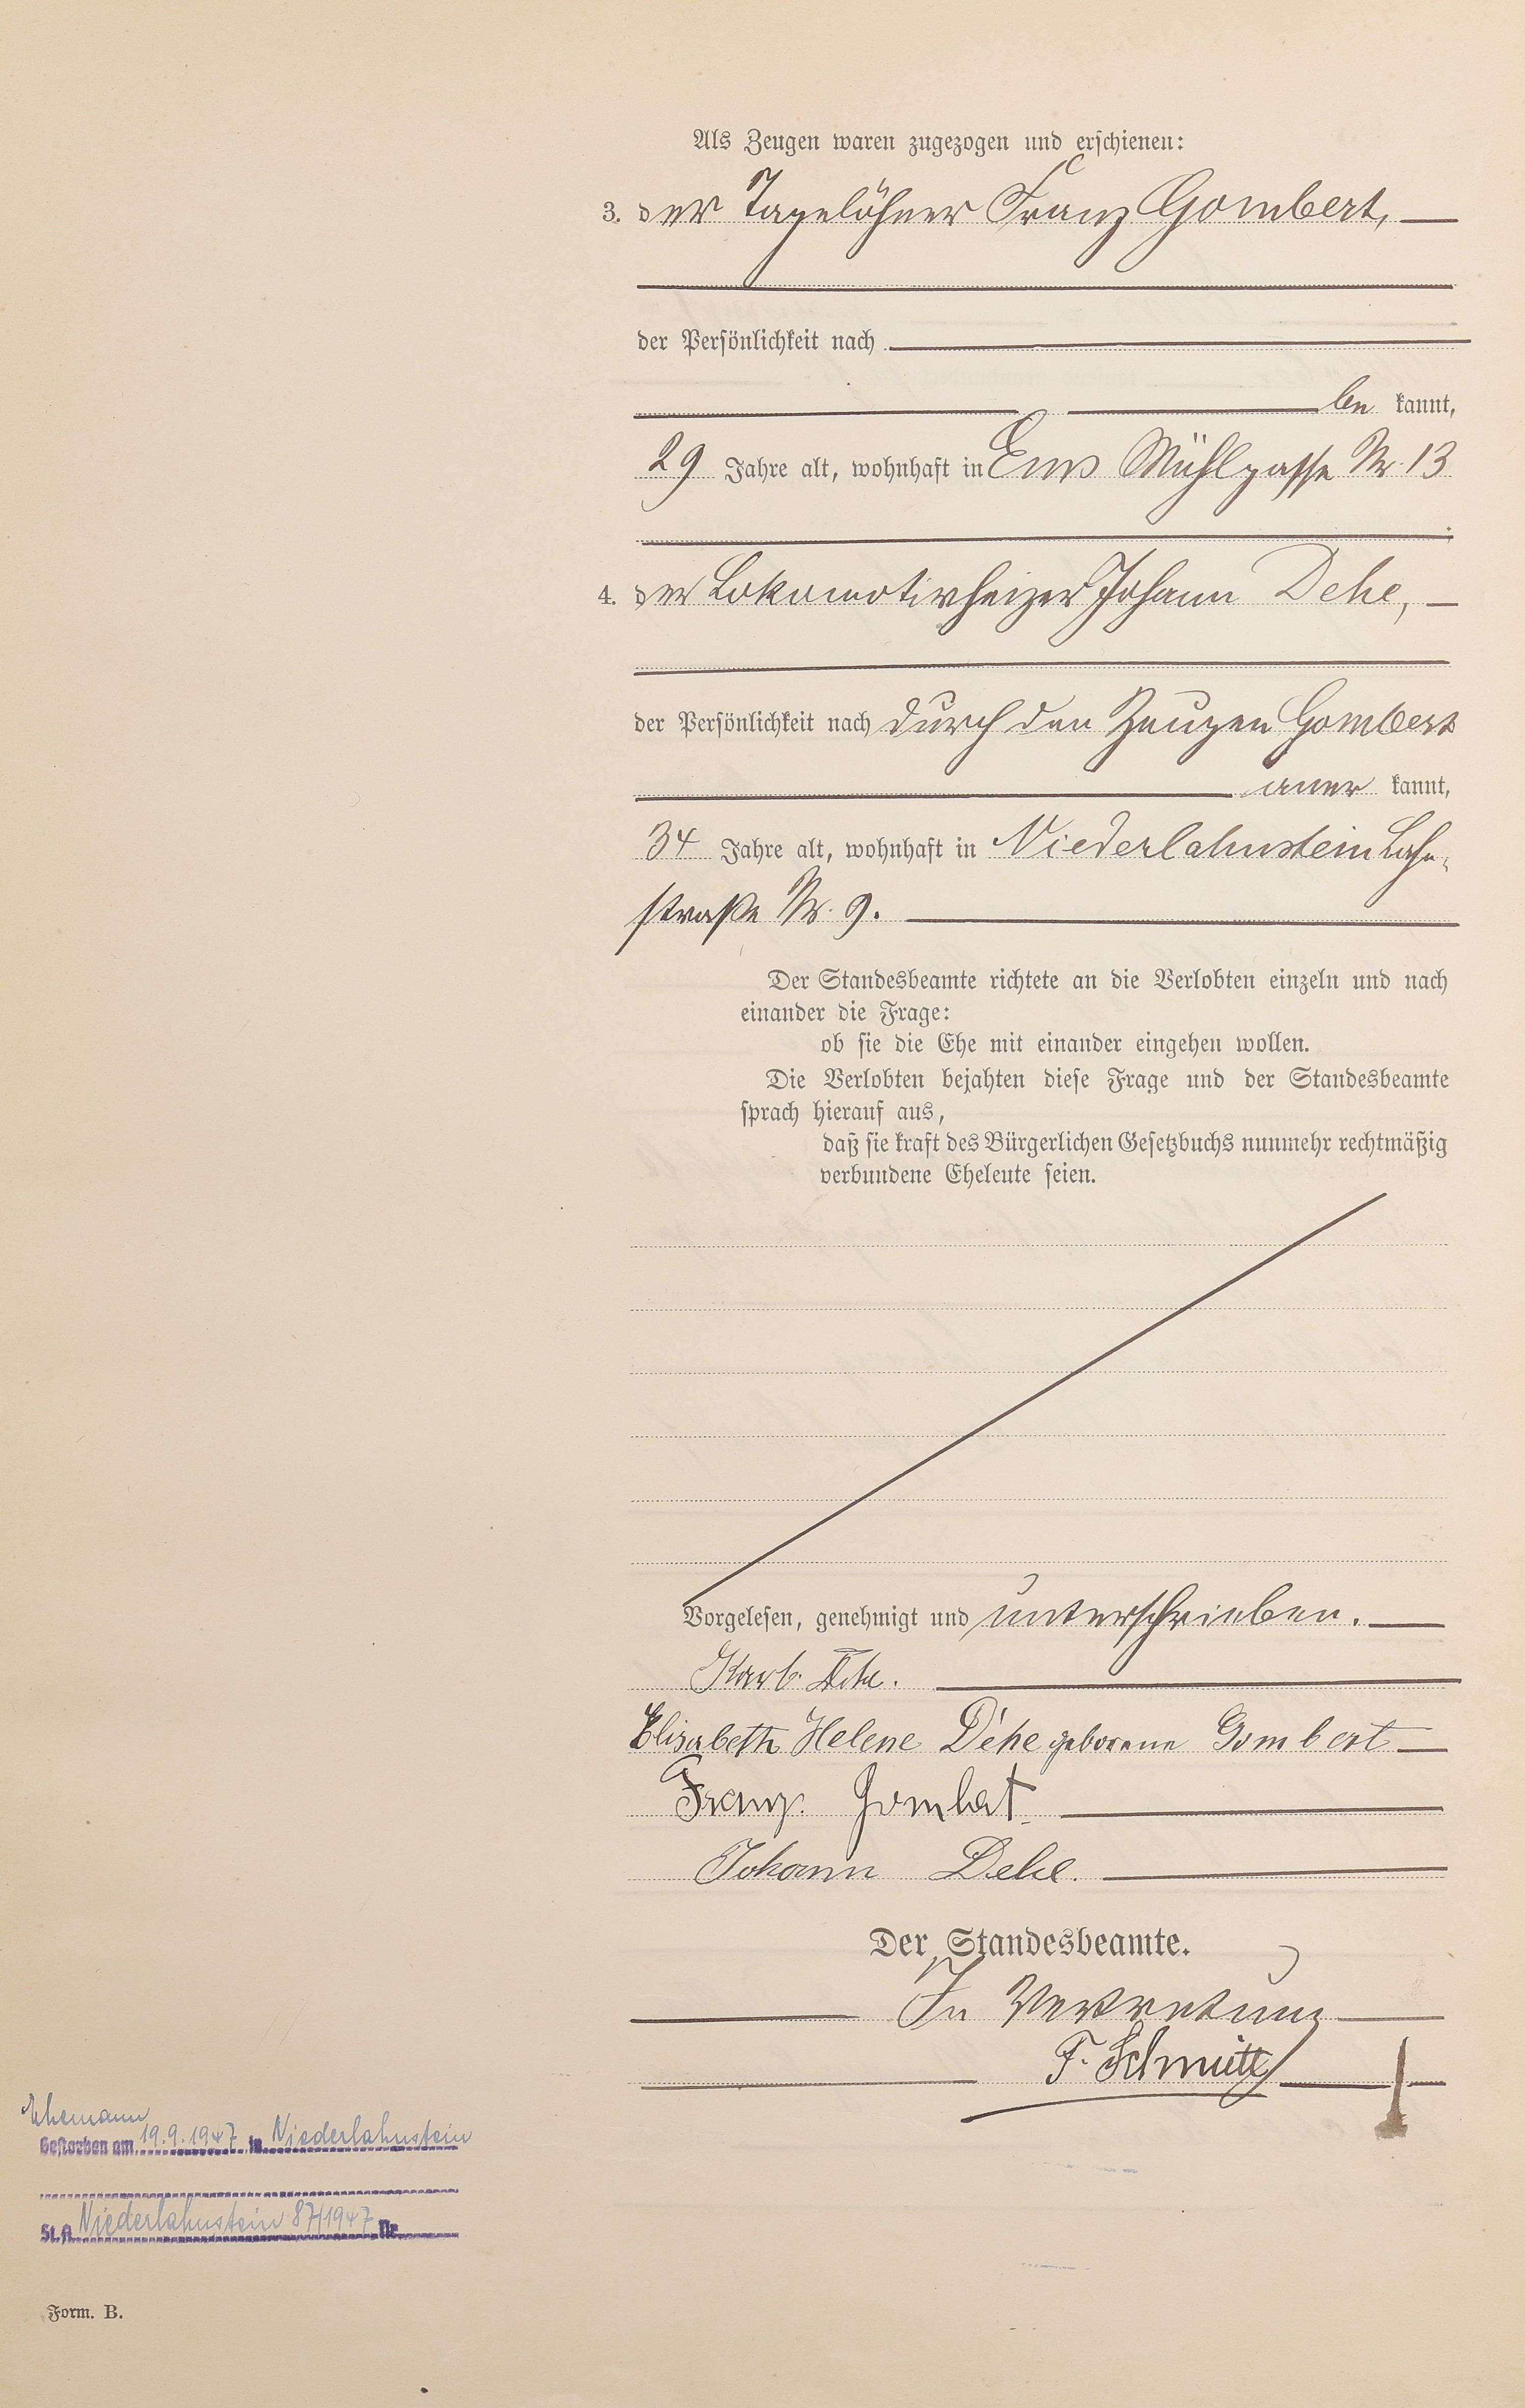 Als Zeugen waren zugezogen und erschienen:
3. der Tagelöhner Franz Gombert,
der Persönlichkeit nach
be kannt,
29 Jahre alt, wohnhaft in Ems Mühlgasse Nr. 13
4. der Lokomotivheizer Johann Dehe,
der Persönlichkeit nach durch den Zeugen Gombert
aner kannt,
34 Jahre alt, wohnhaft in Niederlahnstein Lahn-
straße Nr. 9.
Der Standesbeamte richtete an die Verlobten einzeln und nach
einander die Frage:
ob sie die Ehe mit einander eingehen wollen.
Die Verlobten bejahten diese Frage und der Standesbeamte
sprach hierauf aus,
daß sie kraft des Bürgerlichen Gesetzbuchs nunmehr rechtmäßig
verbundene Eheleute seien.
Vorgelesen, genehmigt und unterschrieben.
Dehe.
Elisabeth Helene Dehe geborene Gombert
Franz Gombert
Johann Dehe.
Der Standesbeamte.
In Vertretung
F. Schmitz
Ehemann
Gestorben am 19.9.1947 in Niederlahnstein
St.A. Niederlahnstein 87/1947 Nr.
Form. B.